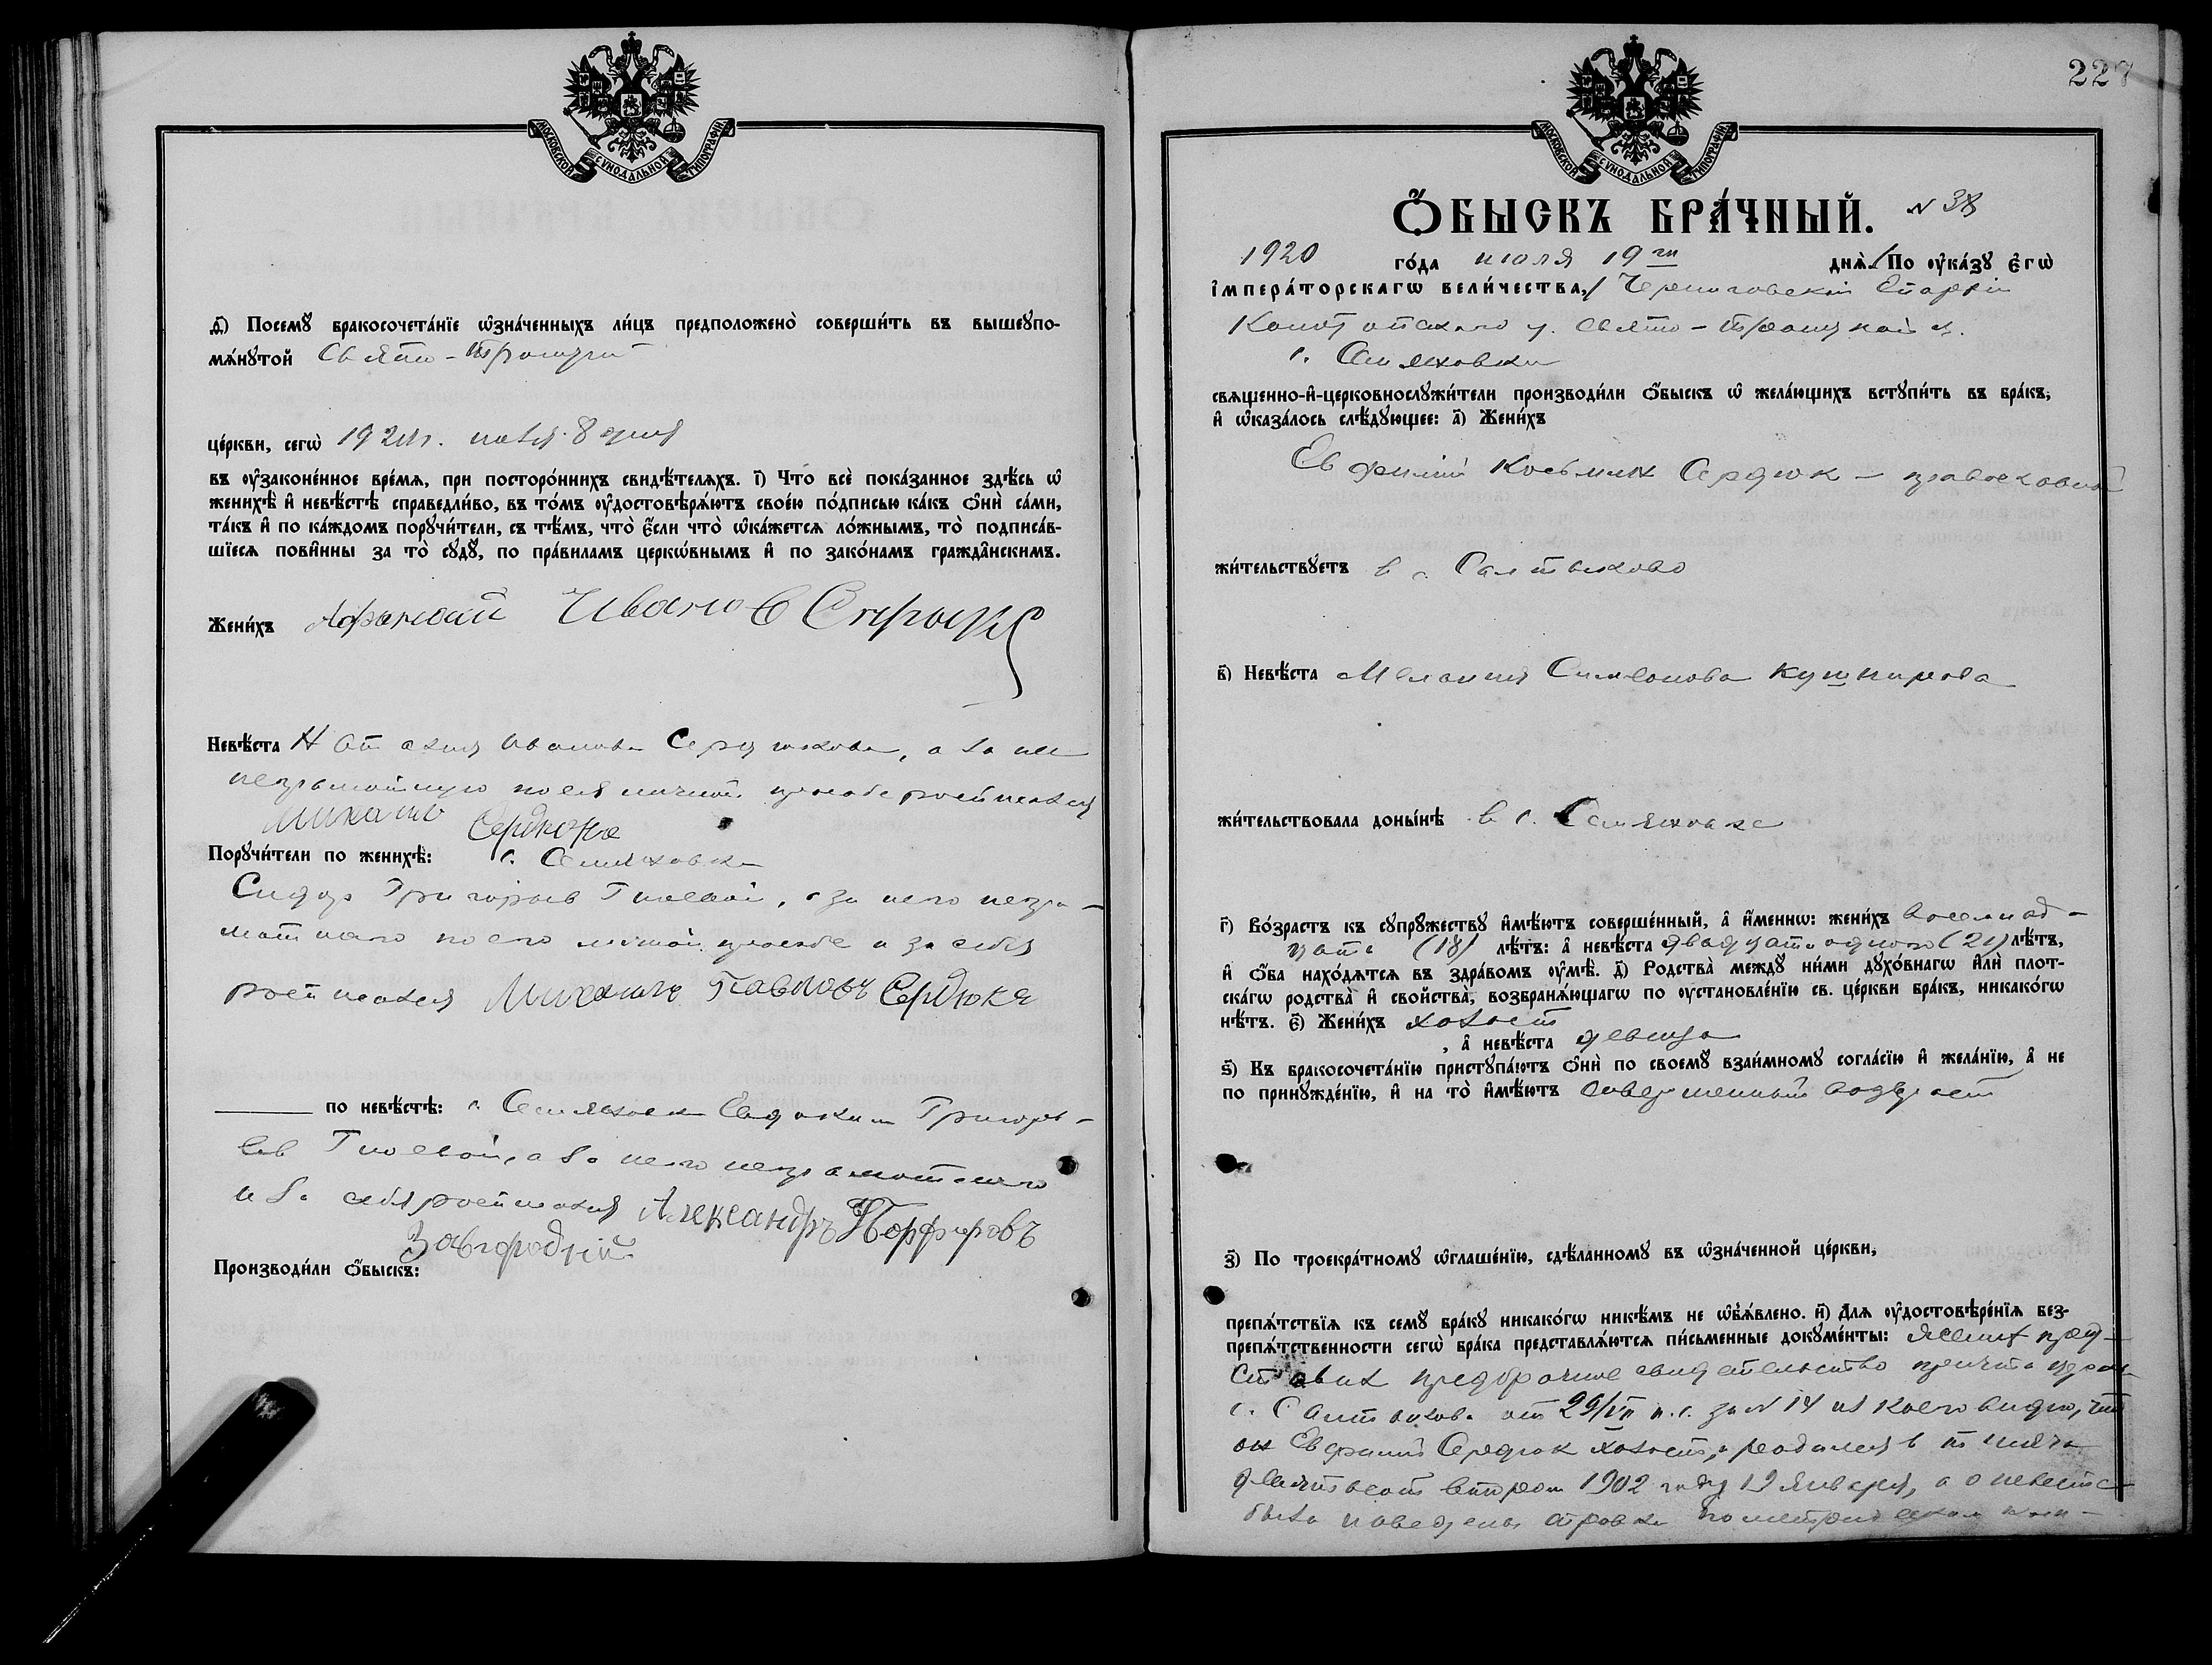 МОСКОВСКОЙ СѴНОДАЛЬНОЙ ТИПОГРАФІИ
д҃) Посемꙋ̀ бракосочета́нїе ѡ҆зна́ченныхъ ли́цъ предположено̀ соверши́ть въ вышеꙋпо-
мѧ́нꙋтой Свято-Троицкой
це́ркви, сегѡ̀ 1920 г. 8 дня
въ ᲂу҆зако́ненное вре́мѧ, при посторо́ннихъ свидѣ́телѧхъ. і҃) Что̀ всѐ пока́занное здѣ́сь ѡ҆
женихѣ̀ и҆ невѣ́стѣ справедли́во, въ то́мъ ᲂу҆достовѣрѧ́ютъ свое́ю по́дписью ка́къ ѻ҆нѝ са́ми,
та́къ и҆ по ка́ждомъ порꙋчи́тели, съ тѣ́мъ, что̀ є҆́сли что̀ ѡ҆ка́жетсѧ ло́жнымъ, то̀ подписа́в-
шїесѧ пови́нны за то̀ сꙋдꙋ̀, по пра́виламъ церко́внымъ и҆ по зако́намъ гражда́нскимъ.
Жени́хъ Афанасий Иванов Сердюк
Невѣ́ста Наталия Иванова Сердюкова, а за нее
неграмотную по ея личной просьбе росписался
Михаил Сердюкъ
Порꙋчи́тели по женихѣ̀: с. Семяновки
Сидор Григорьев Гноевой, а за него негра-
мотного по его личной просьбе и за себя
росписался Михаилъ Павловъ Сердюкъ
по невѣ́стѣ: с. Семяновки Евдоким Григорь-
ев Гноевой, а за него неграмотного
и за себя росписался Александръ Порфировъ
Завгородній
Производи́ли ѻ҆́быскъ:
227
МОСКОВСКОЙ СѴНОДАЛЬНОЙ ТИПОГРАФІИ
Ѻ҆́быскъ бра́чный. N 38
1920 го́да июля 19 го днѧ̀. По ᲂу҆ка́зꙋ є҆гѡ̀
і҆мпера́торскагѡ вели́чества, Черниговской Епархии
Конотопского у. Свято-Троицкой ц.
с. Семяновки
свѧще́нно-и҆-церковнослꙋжи́тели производи́ли ѻ҆́быскъ ѡ҆ жела́ющихъ встꙋпи́ть въ бра́къ,
и҆ ѡ҆каза́лось слѣ́дꙋющее: а҃) Жени́хъ
Евфимий Косьмин Сердюк - православный
жи́тельствꙋетъ в с. Салтыково
в҃) Невѣ́ста Мелания Симеонова Кушнирова
жи́тельствовала доны́нѣ в с. Семяновке
г҃) Во́зрастъ къ сꙋпрꙋ́жествꙋ и҆мѣ́ютъ соверше́нный, а҆ и҆́менно: жени́хъ восемнад-
цать (18) лѣ́тъ: а҆ невѣ́ста двадцать одного (21) лѣ́тъ,
и҆ ѻ҆́ба нахо́дѧтсѧ въ здра́вомъ ᲂу҆мѣ̀. д҃) Родства̀ междꙋ̀ ни́ми дꙋхо́внагѡ и҆лѝ плот-
ска́гѡ родства̀ и҆ сво́йства, возбранѧ́ющагѡ по ᲂу҆становле́нїю св. це́ркви бра́къ, никако́гѡ
нѣ́тъ. є҃) Жени́хъ холост
, а҆ невѣ́ста девица
ѕ҃) Къ бракосочета́нїю пристꙋпа́ютъ ѻ҆нѝ по своемꙋ̀ взаи́мномꙋ согла́сїю и҆ жела́нїю, а҆ не
по принꙋжде́нїю, и҆ на то̀ и҆мѣ́ютъ совершенный возраст
з҃) По троекра́тномꙋ ѡ҆глаше́нїю, сдѣ́ланномꙋ въ ѡ҆зна́ченной це́ркви,
препѧ́тствїѧ къ семꙋ̀ бра́кꙋ никако́гѡ никѣ́мъ не ѡ҆б̾ѧ́влено. и҃) Для ᲂу҆достовѣре́нїѧ без-
препѧ́тственности сегѡ̀ бра́ка представлѧ́ютсѧ пи́сьменные докꙋме́нты: жених пред-
ставил предбрачное свидетельство причта церкви
с. Салтыкова от 29/VI н.с. за N 14 из коего видно, что
он Евфимий Сердюк холост, родился в тысяча
девятьсот втором 1902 году 19 января, а о невесте
была наведена справка по метрическим кни-